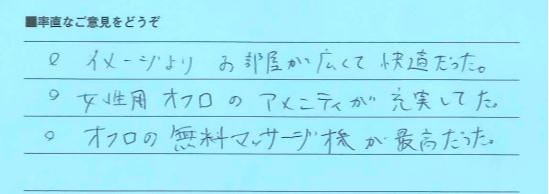 ■率直なご意見をどうぞ
○ イメージより お部屋が広くて快適だった。
○ 女性用オフロのアメニティが充実してた。
○ オフロの無料マッサージ機が最高だった。